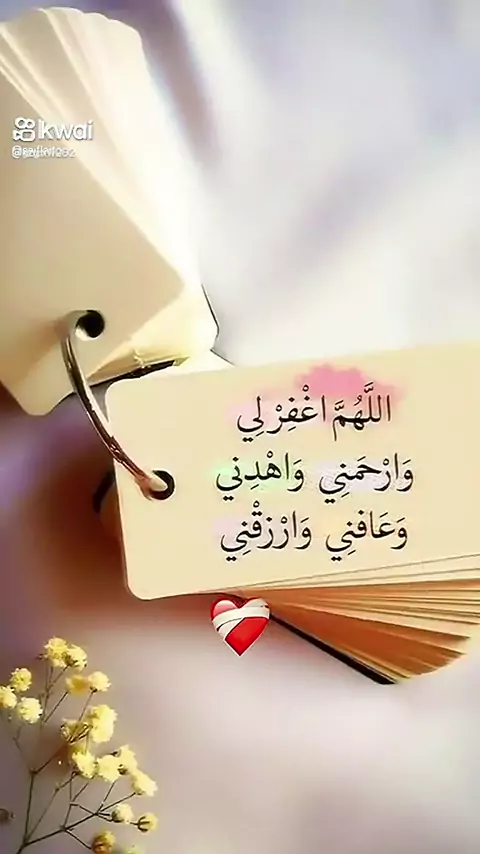 kwai
اللَّهُمَّ اغْفِرْ لِي
وَارْحَمَنِي وَاهْدِني
وَعَافنِي وَارْزقْنِي